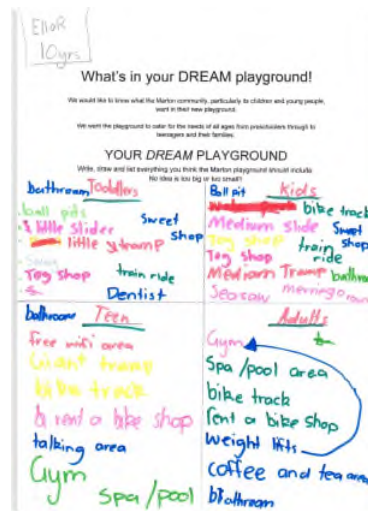 EllaR
10yrs
What's in your DREAM playground!
We would like to know what the Marton community, particularly its children and young people,
want in their new playground.
We want the playground to cater for the needs of all ages from preschoolers through to
teenagers and their families.
YOUR DREAM PLAYGROUND
Write, draw and list everything you think the Marton playground should include.
No idea is too big or too small!
bathroom Toddlers
ball pits
little slider
Sweet Shop
little tramp
Toy shop
train ride
Dentist
Kids
Ball pit
bike track
Medium slide
Sweet shop
Toy shop
train ride
Medium Tramp
bathroom
Seasaw
merringo round
bathroom Teen
free wifi area
Giant tramp
bike track
rent a bike shop
talking area
Gym
Spa/pool
Adults
Gym
Spa/pool area
bike track
rent a bike shop
weight lifts
coffee and tea area
bathroom